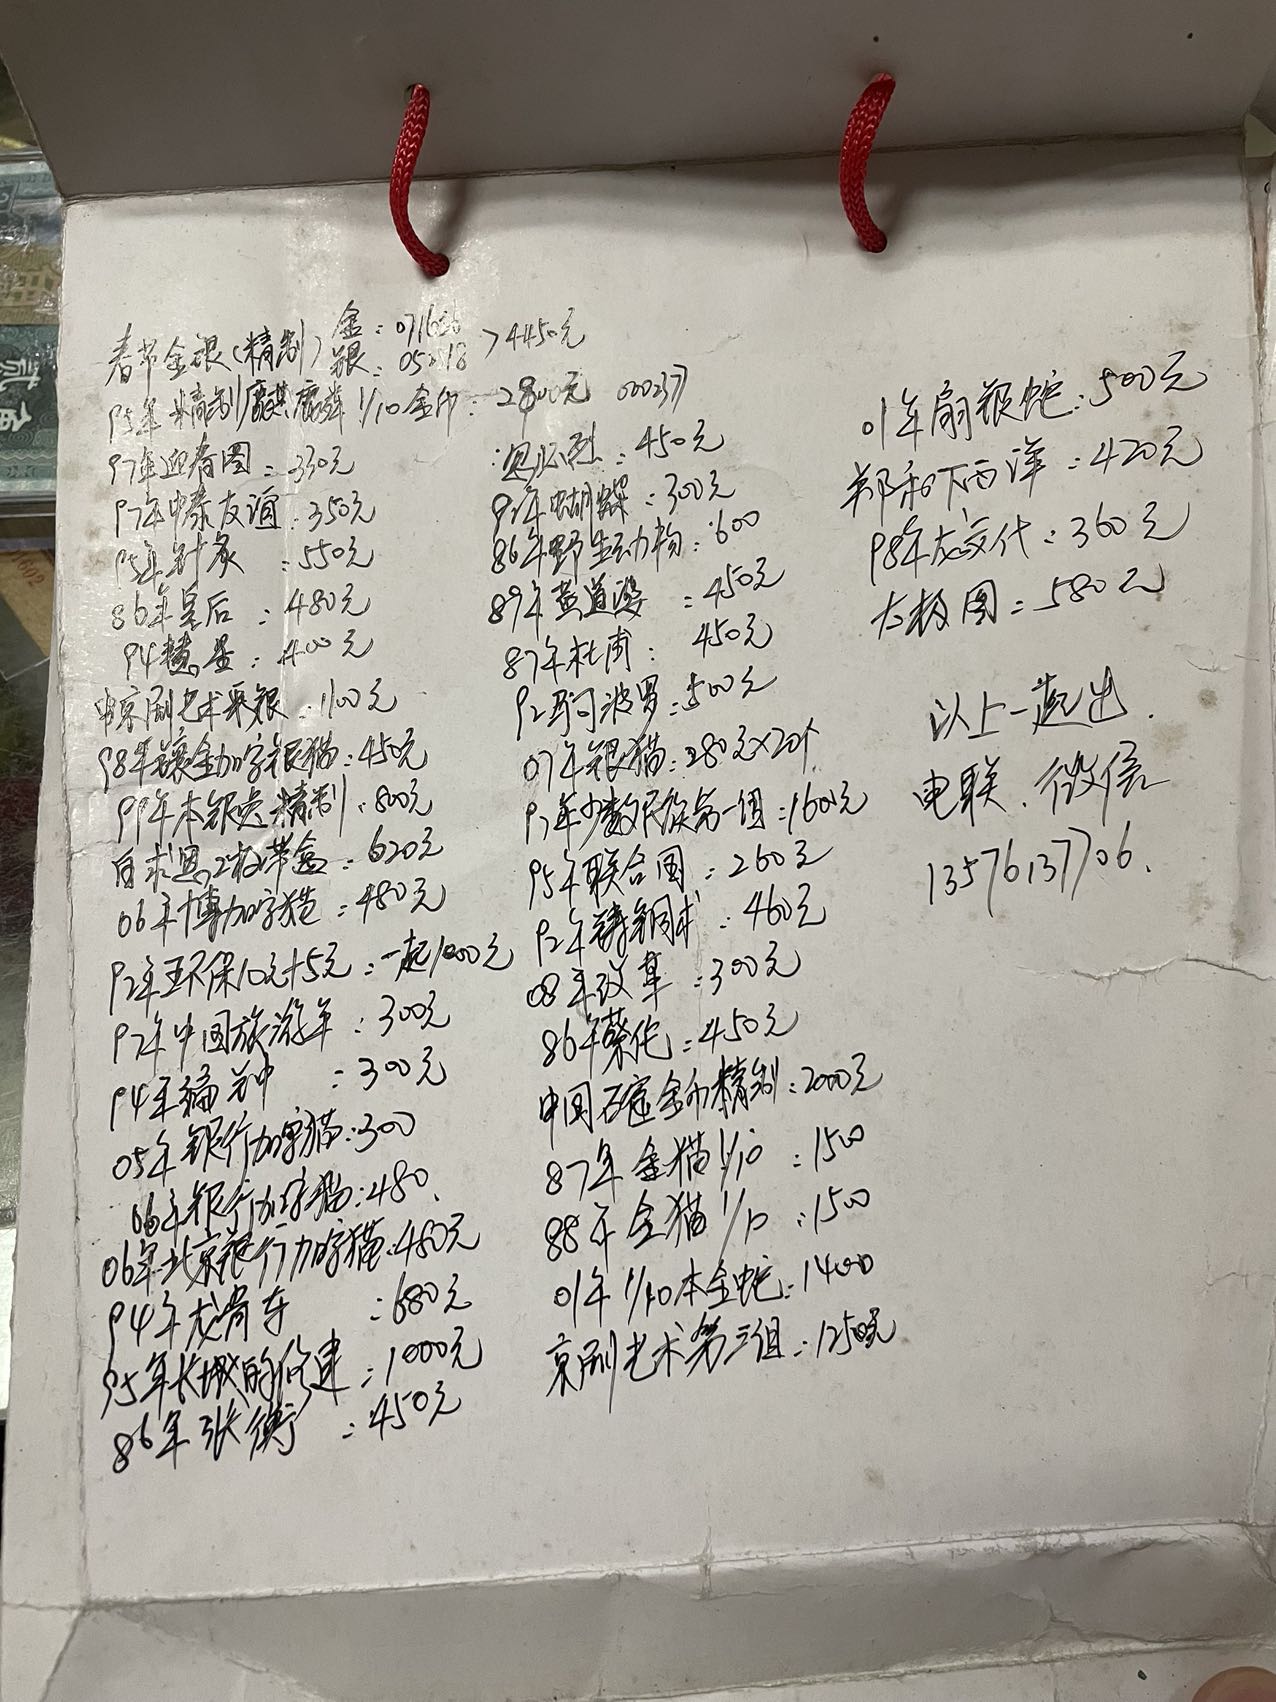 春节金银(精制) 金: 071656 银: 05 18 >4450元
95年精制麒麟1/10金币: 2800元 000237
97年迎春图: 330元
97年中泰友谊: 350元
95年针灸: 550元
86年皇后: 480元
94彗星: 400元
京剧艺术彩银: 1100元
98年镶金加字银猫: 450元
99年本银兔精制: 800元
白求恩2枚带盒: 620元
06年博加字猫: 480元
92年环保10元+5元: 一起1000元
97年中国旅游年: 300元
94年编钟: 300元
05年银行加字猫: 300
06年银行加字猫: 480.
06年北京银行加字猫: 480元
94年龙骨车: 680元
95年长城的修建: 1000元
86年张衡: 450元
忽必烈: 450元
蝴蝶: 300元
86年野生动物: 600
89年黄道婆: 450元
87年杜甫: 450元
92马可波罗: 500元
07年银猫: 280元×20个
97年少数民族第一组: 1600元
95年联合国: 260元
92年铸铜术: 460元
08年改革: 300元
86年蔡伦: 450元
中国石窟金币精制: 2000元
87年金猫1/10: 1500
88年金猫1/10: 1500
01年1/10本金蛇: 1400
京剧艺术第三组: 1250元
01年扇银蛇: 500元
郑和下西洋: 420元
98年龙交代: 360元
太极图: 580元
以上一起出.
电联、微信
13576137706.